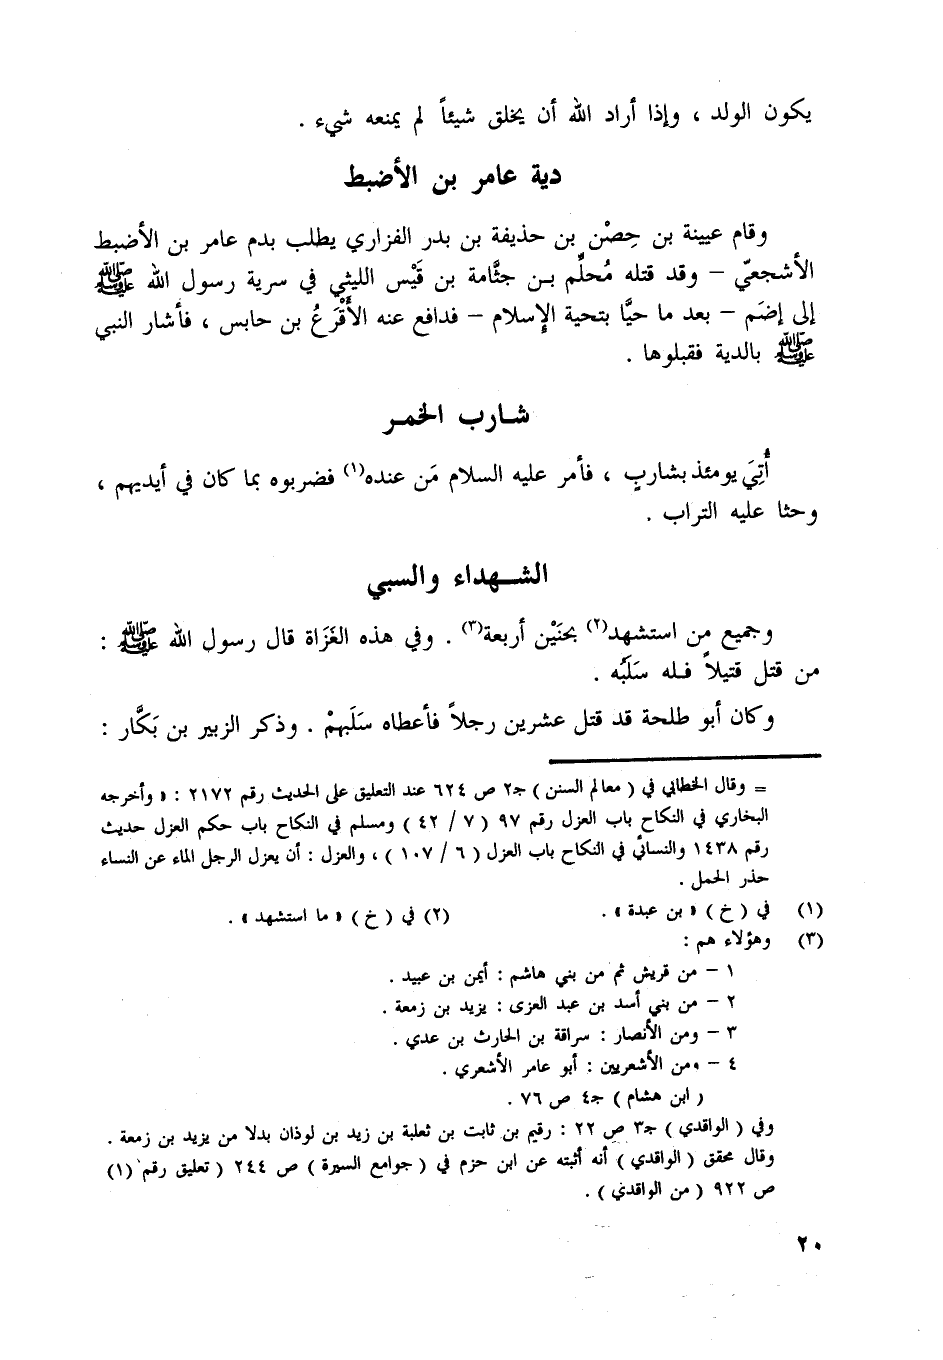 يكون الولد ، وإذا أراد الله أن يخلق شيئاً لم يمنعه شيء .
دية عامر بن الأضبط
وقام عيينة بن حِصْن بن حذيفة بن بدر الفزاري يطلب بدم عامر بن الأضبط
الأشجعيّ – وقد قتله مُحلِّم بـن جثَّامة بن قَيْس الليثي في سرية رسول الله ﷺ
إلى إضَم – بعد ما حيَّا بتحية الإسلام – فدافع عنه الأَقْرَعُ بن حابس ، فأشار النبي
ﷺ بالدية فقبلوها .
شارب الخمر
أُتِيَ يومئذ بشاربٍ ، فأمر عليه السلام مَن عنده(١) فضربوه بما كان في أيديهم ،
وحثا عليه التراب .
الشهداء والسبي
وجميع من استشهد(٢) بحَنَيْن أربعة(٣) . وفي هذه الغَزَاة قال رسول الله ﷺ :
من قتل قتيلاً فـله سَلَبُه .
وكان أبو طلحة قد قتل عشرين رجلاً فأعطاه سَلَبهمْ . وذكر الزبير بن بَكَّار :
= وقال الخطابي في ( معالم السنن ) جـ٢ ص ٦٢٤ عند التعليق على الحديث رقم ٢١٧٢ : « وأخرجه
البخاري في النكاح باب العزل رقم ٩٧ ( ٧ / ٤٢ ) ومسلم في النكاح باب حكم العزل حديث
رقم ١٤٣٨ والنسائي في النكاح باب العزل ( ٦ / ١٠٧ ) ، والعزل : أن يعزل الرجل الماء عن النساء
حذر الحمل .
(١) في ( خ ) « بن عبدة » . (٢) في ( خ ) « ما استشهد » .
(٣) وهؤلاء هم :
١ – من قريش ثم من بني هاشم : أيمن بن عبيد .
٢ – من بني أسد بن عبد العزى : يزيد بن زمعة .
٣ – ومن الأنصار : سراقة بن الحارث بن عدي .
٤ – ومن الأشعريين : أبو عامر الأشعري .
( ابن هشام ) جـ٤ ص ٧٦ .
وفي ( الواقدي ) جـ٣ ص ٢٢ : رقيم بن ثابت بن ثعلبة بن زيد بن لوذان بدلا من يزيد بن زمعة .
وقال محقق ( الواقدي ) أنه أثبته عن ابن حزم في ( جوامع السيرة ) ص ٢٤٤ ( تعليق رقم (١)
ص ٩٢٢ ( من الواقدي ) .
٢٠